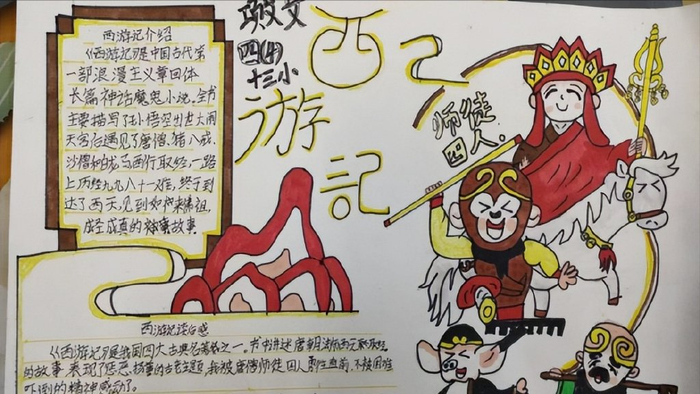 西游记介绍
《西游记》是中国古代第
一部浪漫主义章回体
长篇神话魔鬼小说。全书
主要描写了孙悟空出世大闹
天宫后遇见了唐僧、猪八戒、
沙僧和白龙马西行取经,一路
上历经九九八十一难,终于到
达了西天,见到如来佛祖,
成圣成真的故事
四(4)
十三小
西
游
記
师徒
四人.
西游记读后感
《西游记》是我国四大古典名著之一。书中讲述唐朝
的故事 表现了惩恶扬善的古老主题,我被唐僧师徒四人勇往直前,不被困难
吓倒的精神感动了。